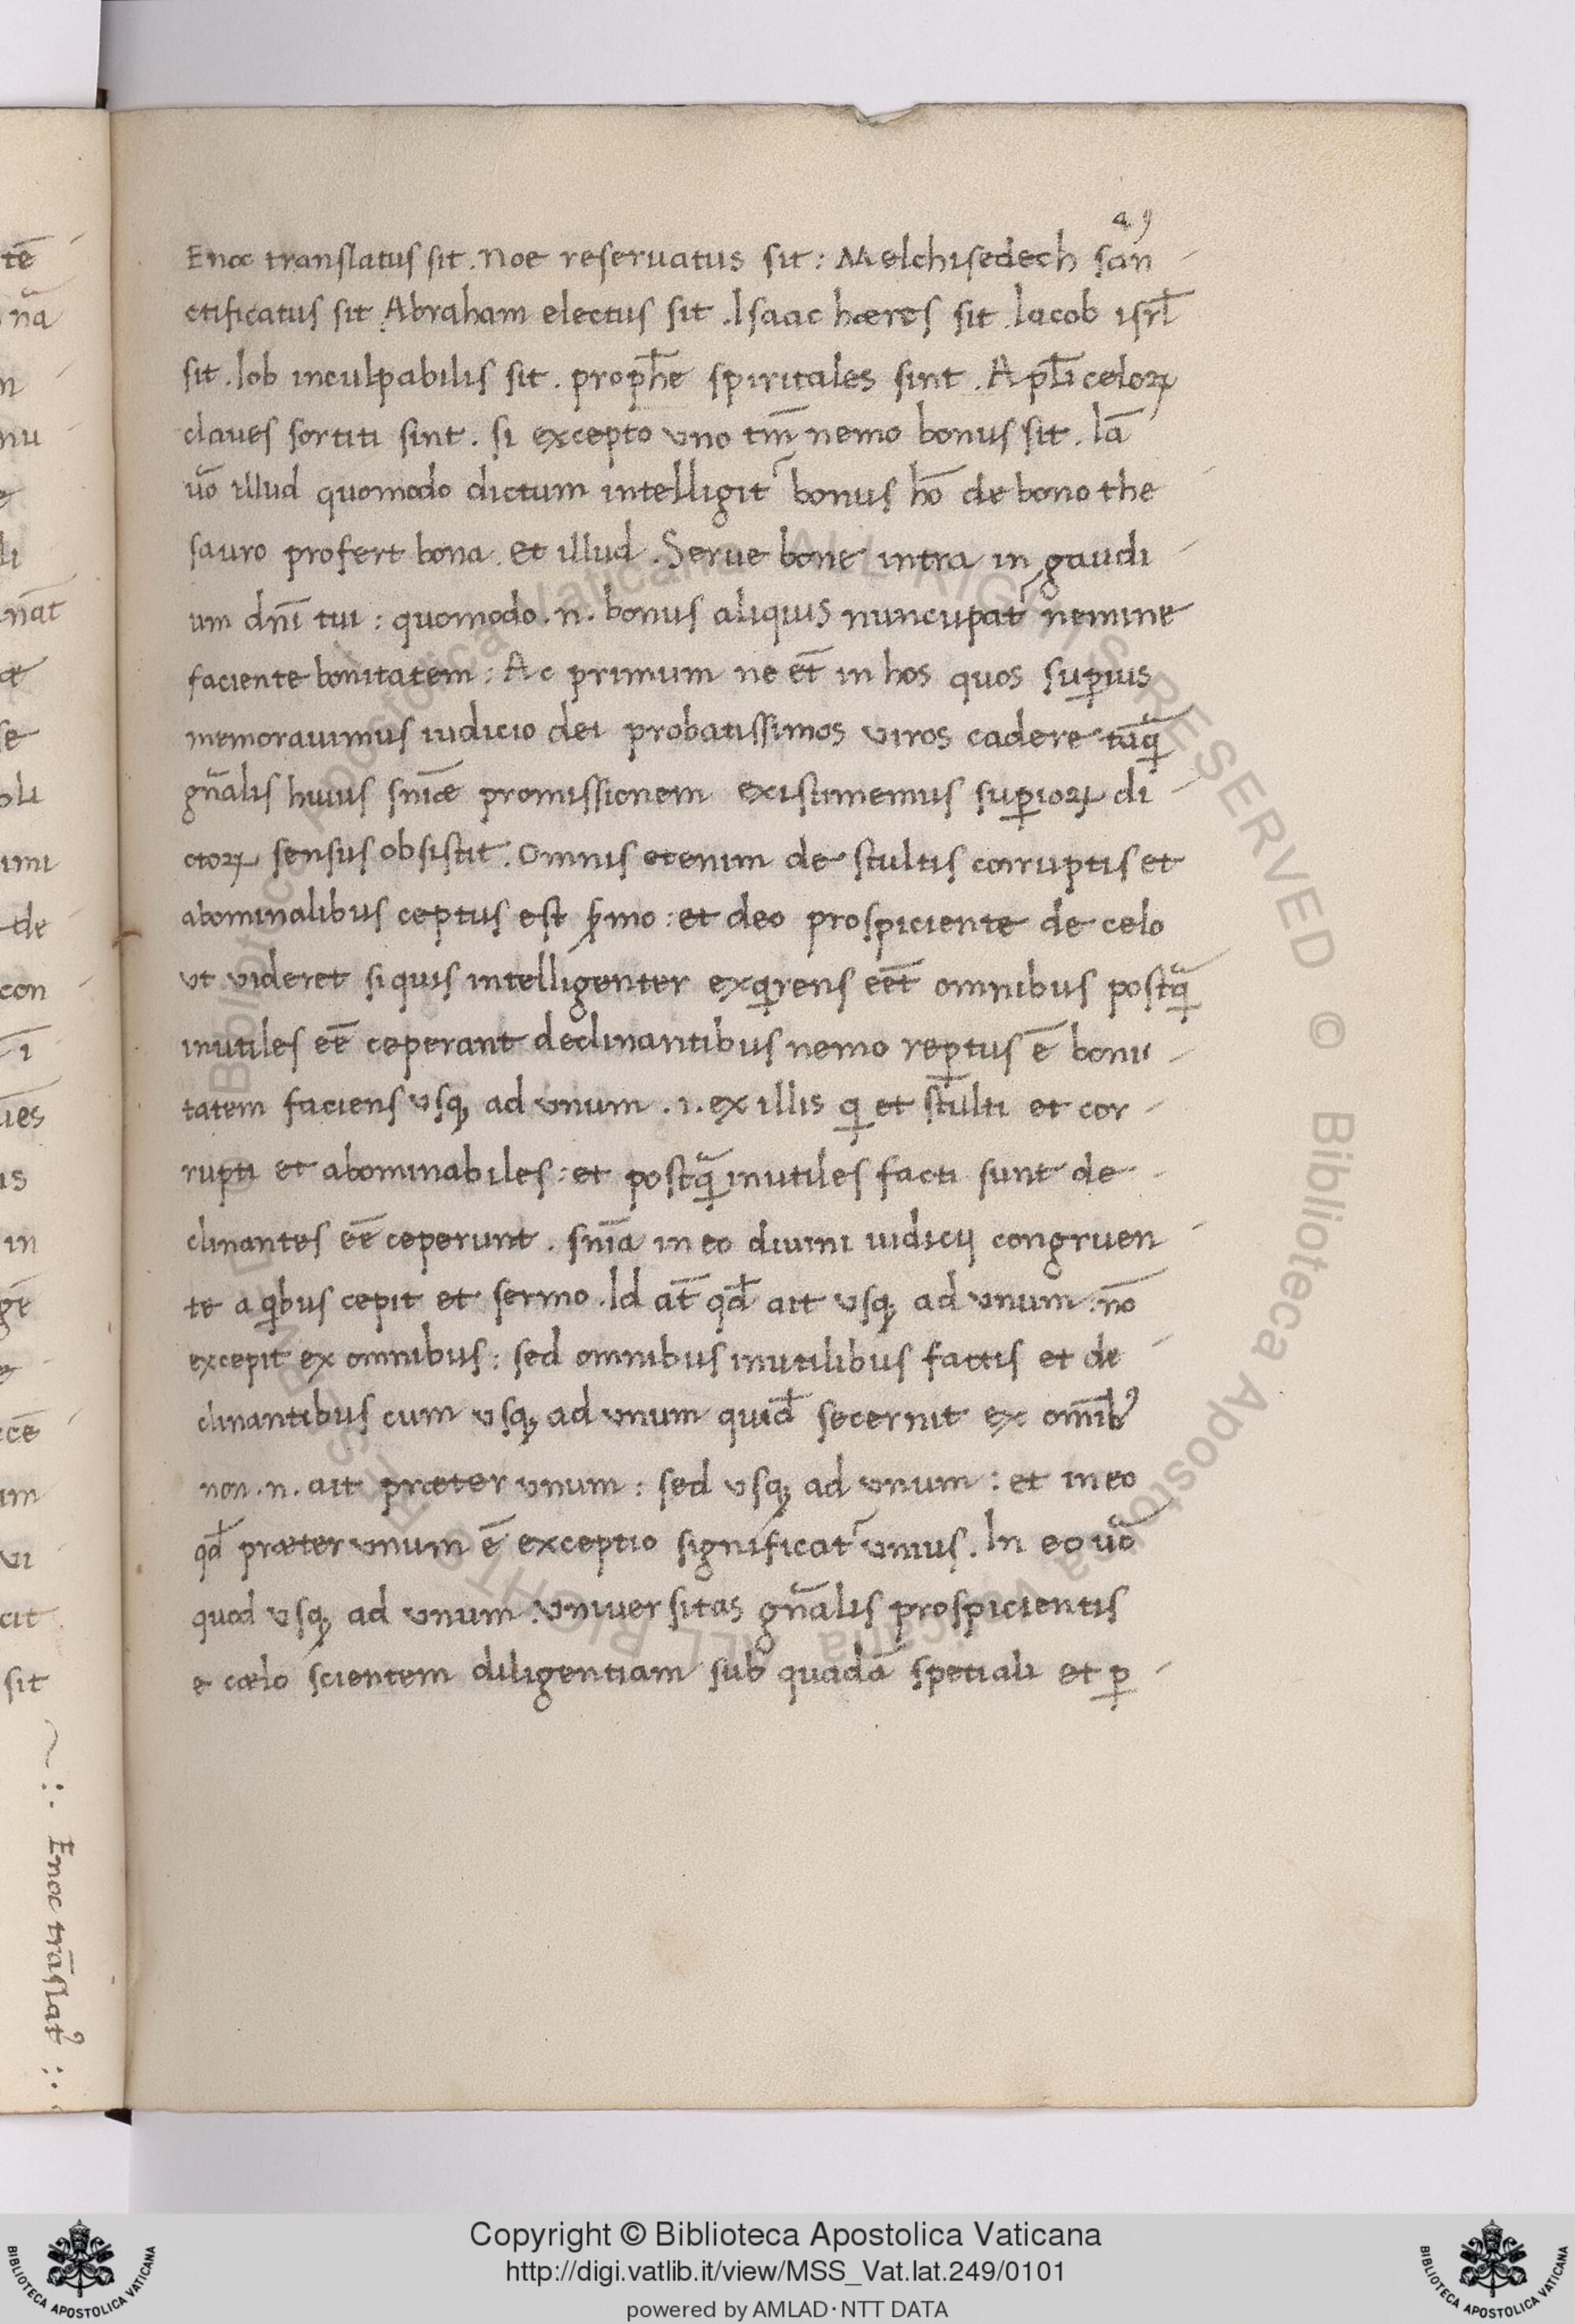 49
Enoc translatus sit. Noe reseruatus sit: Melchisedech san-
ctificatus sit Abraham electus sit. Isaac hæres sit Iacob isrl̄
sit. Iob inculpabilis sit. proph̄e spiritales sint. Apl̄i celoꝝ
claues sortiti sint. si excepto uno tm̄ nemo bonus sit. Iā
uō illud quomodo dictum intelligit᷑ bonus hō de bono the-
sauro profert bona. et illud. Serue bone intra in gaudi-
um dn̄i tui: quomodo .n. bonus aliquis nuncupat᷑ nemine
faciente bonitatem: Ac primum ne et̄ in hos quos suꝑius
memorauimus iudicio dei probatissimos viros cadere tāꝗ
gn̄alis huius sn̄iæ promissionem existimemus suꝑioꝝ di-
ctoꝝ sensus obsistit. Omnis etenim de stultis corruptis et
abominalibus ceptus est s̄mo: et deo prospiciente de celo
ut videret si quis intelligenter exꝗrens eēt omnibus postꝗ̄
inutiles eē ceperant declinantibus nemo reꝑtus ē boni-
tatem faciens usqꝫ ad unum .i. ex illis ꝗ et stulti et cor-
rupti et abominabiles: et postꝗ̄ inutiles facti sunt de-
clinantes eē ceperunt. sn̄ia in eo diuini iudicij congruen-
te a ꝗbus cepit et sermo. Id at̄ qd̄ ait usqꝫ ad unum: nō
excepit ex omnibus: sed omnibus inutilibus factis et de-
clinantibus cum usqꝫ ad unum quid̄ secernit ex omībꝰ
non .n. ait præter unum: sed usqꝫ ad unum: et in eo
qd̄ præter unum ē exceptio significat᷑ unius. In eo uō
quod usqꝫ ad unum uniuersitas gn̄alis prospicientis
e cælo scientem diligentiam sub quadā spetiali et ꝑ-
Enoc trāslatꝰ
Copyright © Biblioteca Apostolica Vaticana
http://digi.vatlib.it/view/MSS_Vat.lat.249/0101
powered by AMLAD·NTT DATA